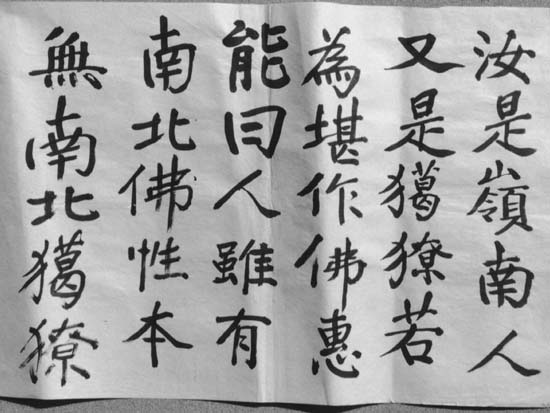 汝是嶺南人
又是獦獠若
為堪作佛惠
能曰人雖有
南北佛性本
無南北獦獠